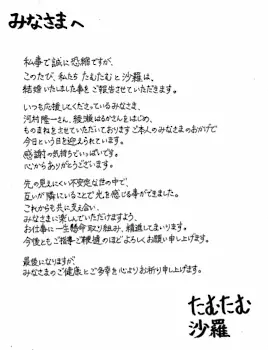 みなさまへ
私事で誠に恐縮ですが、
このたび、私たち たむたむと沙羅は、
結婚いたしました事を ご報告させていただきます。
いつも応援してくださっているみなさま、
河村隆一さん、綾瀬はるかさんをはじめ、
ものまねをさせていただいております ご本人のみなさまのおかげで
今日という日を迎えられています。
感謝の気持ちでいっぱいです。
心からありがとうございます。
先の見えにくい不安定な世の中で、
互いが隣にいることで光を感じる事ができました。
これからも共に支え合い、
みなさまに楽しんでいただけますよう、
お仕事に一生懸命取り組み、精進してまいります。
今後ともご指導ご鞭撻のほどよろしくお願い申し上げます。
最後になりますが、
みなさまのご健康とご多幸を心よりお祈り申し上げます。
たむたむ
沙羅